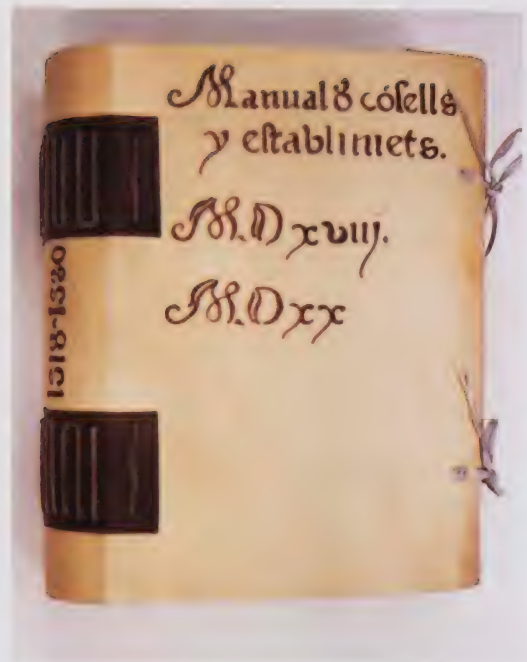 Manual ð cõsells
y establimẽts.
M.D xviij.
M.D xx
1518-1520